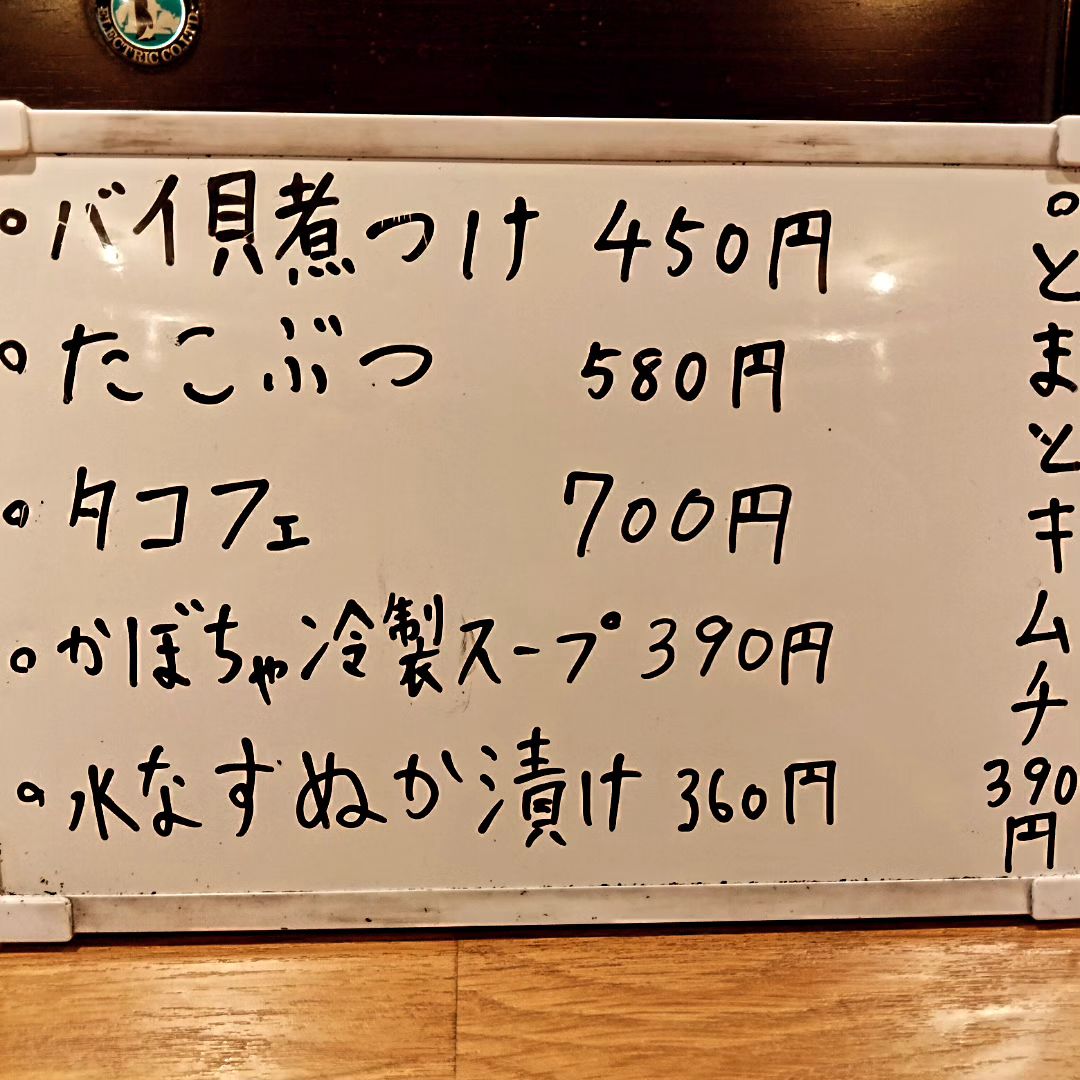 ELECTRIC CO.LTD.
。バイ貝煮つけ 450円
。たこぶつ 580円
。タコフェ 700円
。かぼちゃ冷製スープ 390円
。水なすぬか漬け 360円
。とまとキムチ 390円